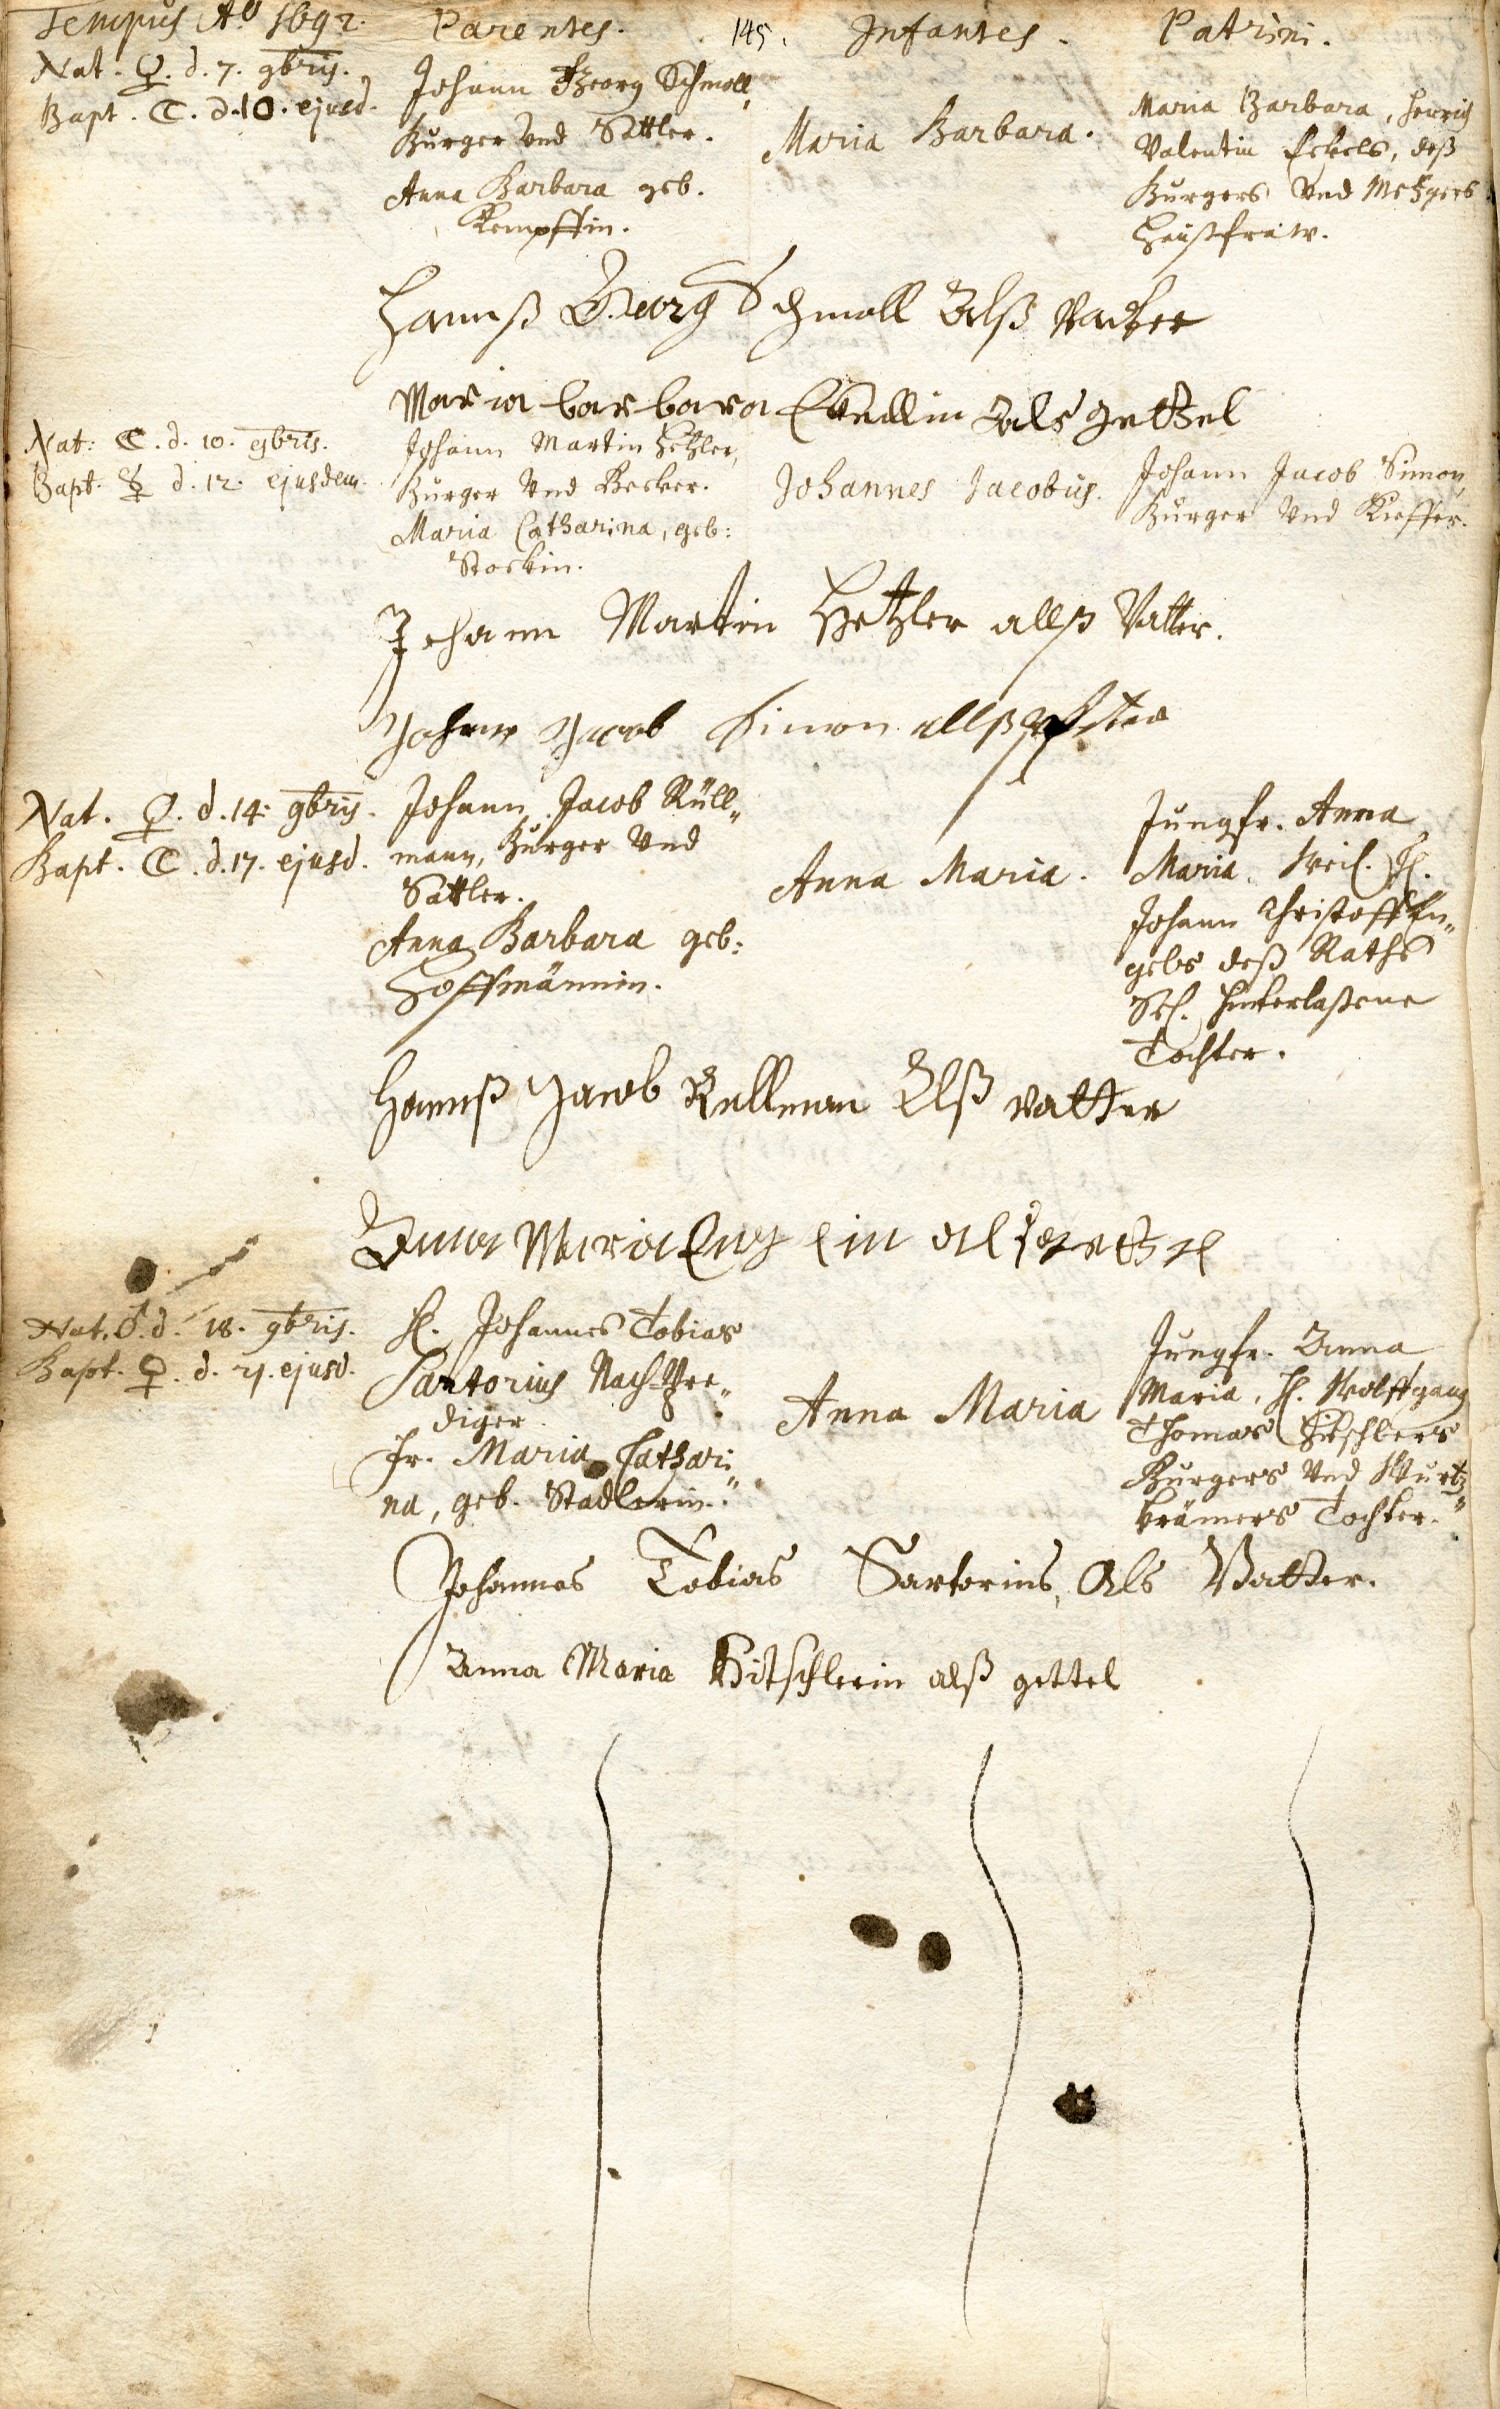 Tempus Ao 1692. Parentes. 145. Infantes. Patrini.
Nat. ♀. d. 7. 9bris.
Bapt. ☾. d. 10. ejusd.
Johann Georg Schmoll,
Burger Und Sattler.
Anna Barbara geb.
Kempffin.
Maria Barbara.
Maria Barbara, Henrich
Valentin Eckels, deß
Burgers Und Metzgers
Haußfraw.
Hannß Georg Schmoll Alß Vatter
Maria barbara Eckellin Als gettel
Nat: ☾. d. 10. 9bris.
Bapt. ☿ d. 12. ejusdem.
Johann Martin Hetzler,
Burger Und Becker.
Maria Catharina, geb:
Stockin.
Johannes Jacobus.
Johann Jacob Simon,
Burger Und Kieffer.
Johann Martin Hetzler allß Vatter.
Johann Jacob Simon allß
Nat. ♀. d. 14. 9bris.
Bapt. ☾. d. 17. ejusd.
Johann Jacob Rüll„
mann, Burger Und
Sattler.
Anna Barbara geb:
Hoffmännin.
Anna Maria.
Jungfr. Anna
Maria, Weil. H.
Johann Christoff En„
gels deß Raths
Sel. hinterlaßene
Tochter.
Hannß Jacob Rullman Alß vatter
Anna Maria Englin als gettel
Nat. ♂. d. 18. 9bris.
Bapt. ♀. d. 21. ejusd.
H. Johannes Tobias
Sartorius Nach-Pre„
diger.
Fr. Maria Cathari„
na, geb. Stadlerin.
Anna Maria
Jungfr. Anna
Maria, H. Wolffgang
Thomas Hitschlers
Burgers Und Wurtz„
krämers Tochter.
Johannes Tobias Sartorius, Als Vatter.
Anna Maria Hitschlerin alß gettel